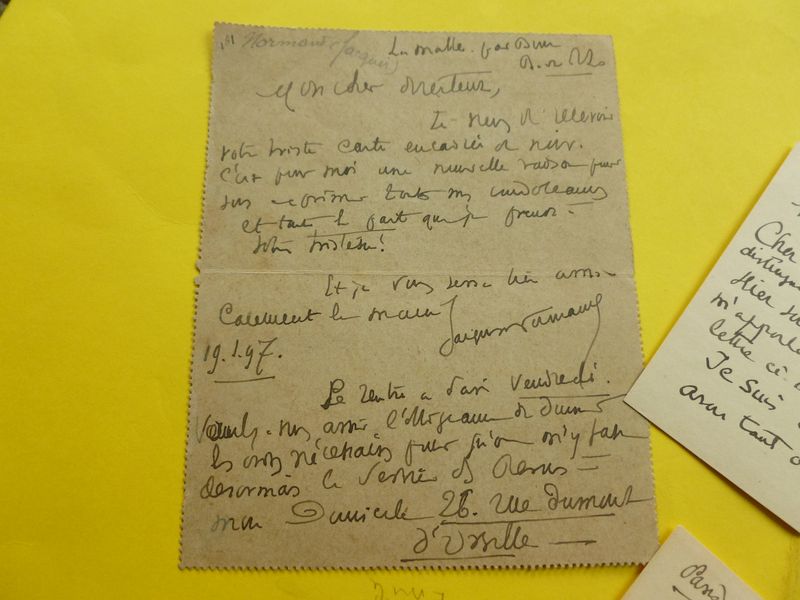 Normand (Jacques)
La Malle. par Bouc
B. du Rh.
Mon cher directeur,
Je reçois
votre triste carte encadrée de noir.
C'est pour moi une nouvelle raison pour
vous exprimer toutes mes condoléances
et toute la part que je prends à
votre tristesse!
Et je vous serre bien ami-
calement la main
Jacques Normand
19.1.97.
Je rentre à Paris Vendredi.
Veuillez-vous avoir l'obligeance de donner
les ordres nécessaires pour qu'on m'y fasse
désormais le service des Revues
mon Domicile 26. rue Dumont
d'Urville
Cher
disting
Hier
m'apport
lettre ci
Je suis
avec tout
Paris